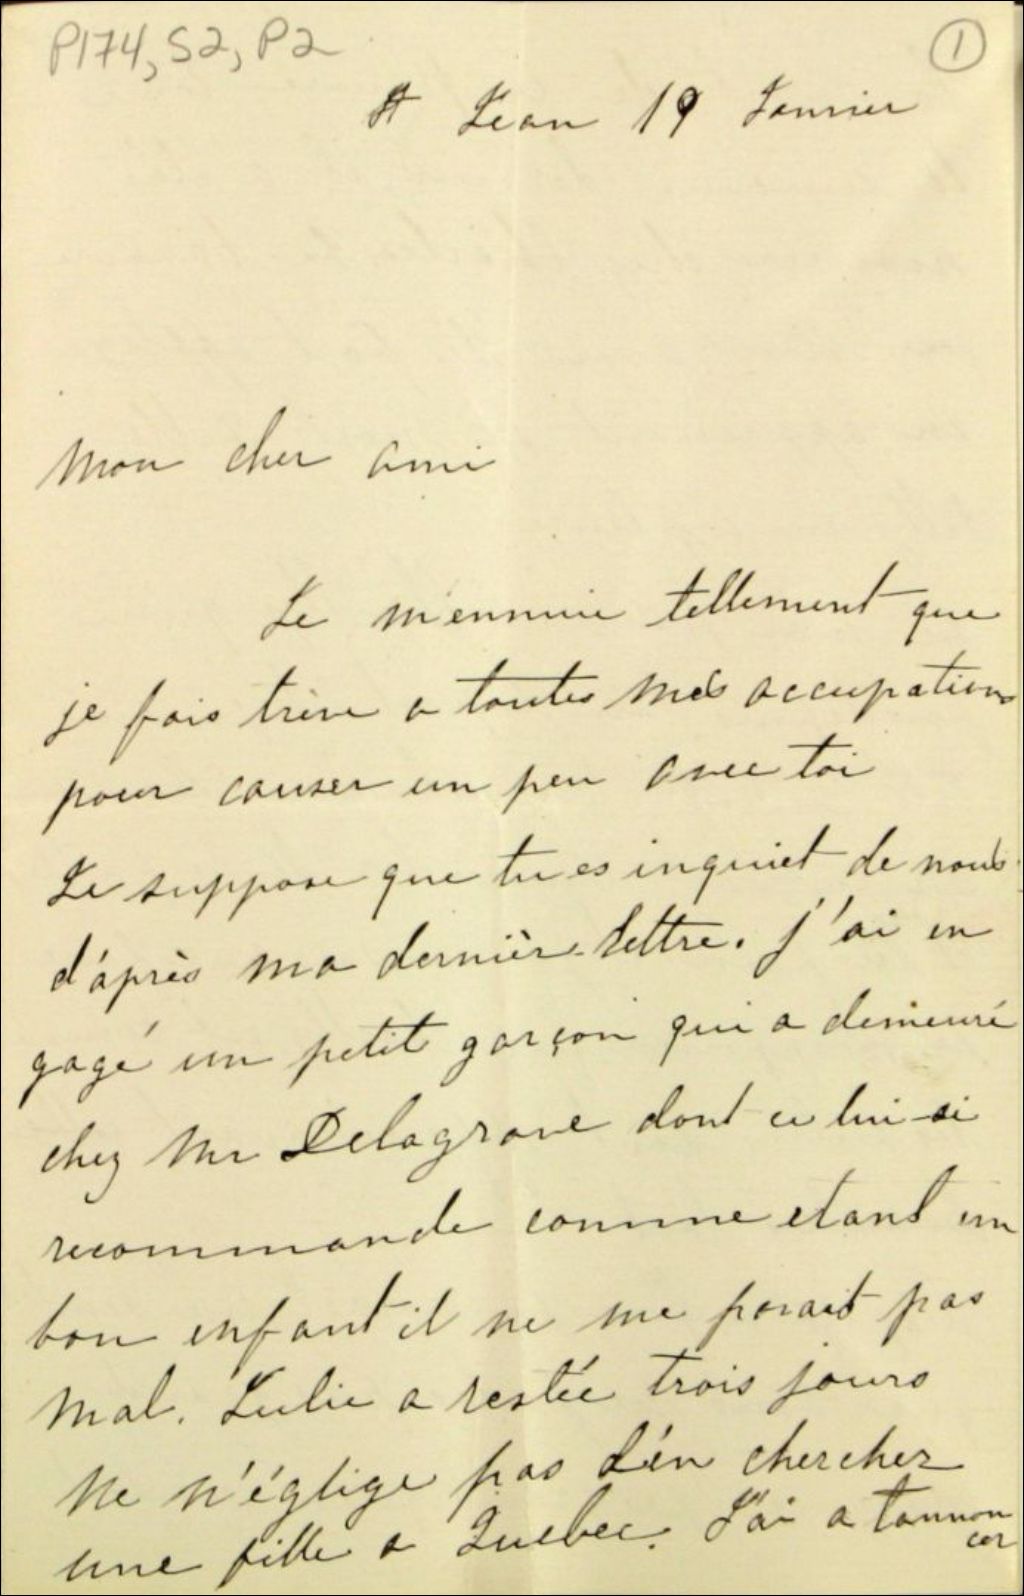 P174, S2, P2
1
St Jean 19 Janvier
Mon cher ami
Je m'ennuie tellement que
je fais trève a toutes mes occupations
pour causer un peu avec toi
Je suppose que tu es inquiet de nous
d'après ma dernièr lettre. j'ai en
gagé un petit garçon qui a demeuré
chez Mr Delagrave dont ce lui-ci
recommande comme etant un
bon enfant il ne me parait pas
mal. Julie a restée trois jours
Ne n'églige pas d'én chercher
une fille a Quebec. J'ai a tannon
cer